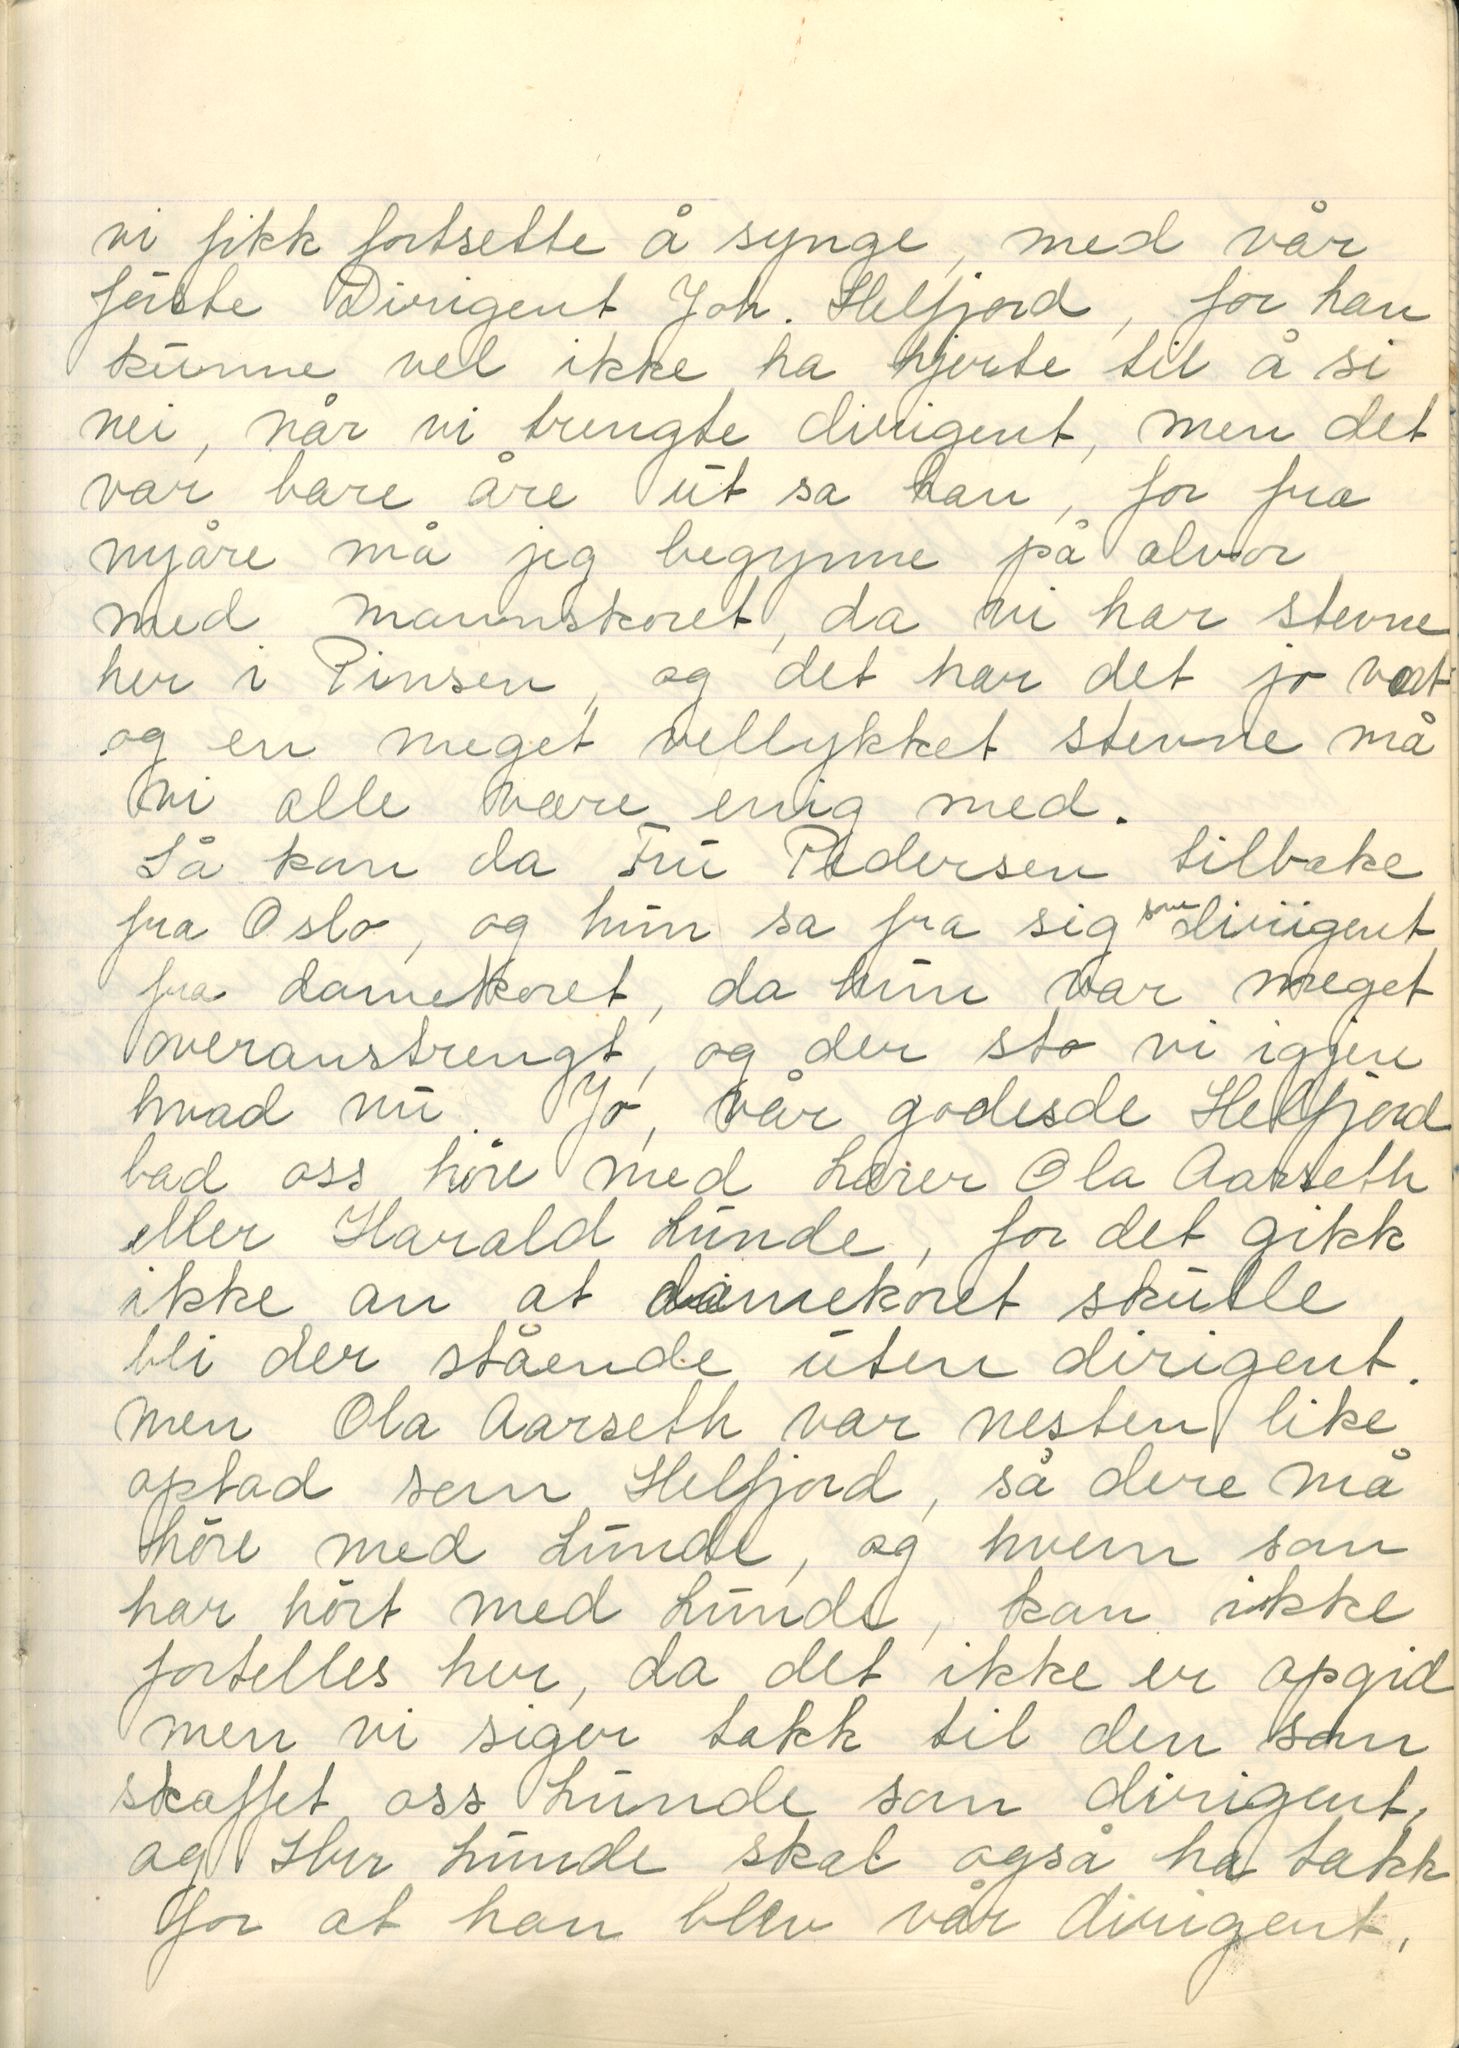 vi fikk fortsette å synge, med vår
förste Dirigent Joh. Helfjord, for han
kunne vel ikke ha hjerte til å si
nei, når vi trengte dirigent, men det
var bare åre ut sa han, for fra
nyåre må jeg begynne på alvor
med mannskoret, da vi har stevne
her i Pinsen, og det har det jo vært
og en meget vellykket stevne må
vi alle være enig med.
Så kom da Fru Pedersen tilbake
fra Oslo, og hun sa fra sig som diriigent
fra damekoret, da hun var meget
overanstrengt, og der sto vi igjen
hvad nu. Jo, vår godesde Helfjord
bad oss höre med Lærer Ola Aarseth
eller Harald Lunde, for det gikk
ikke an at damekoret skulle
bli der stående uten dirigent.
men Ola Aarseth var nesten like
optad som Helfjord, så dere må
höre med Lunde, og hvem som
har hört med Lunde, kan ikke
fortelles her, da det ikke er opgid
men vi siger takk til den som
skaffet oss Lunde som dirigent,
og Herr Lunde skal også ha takk
for at han blev vår dirigent,